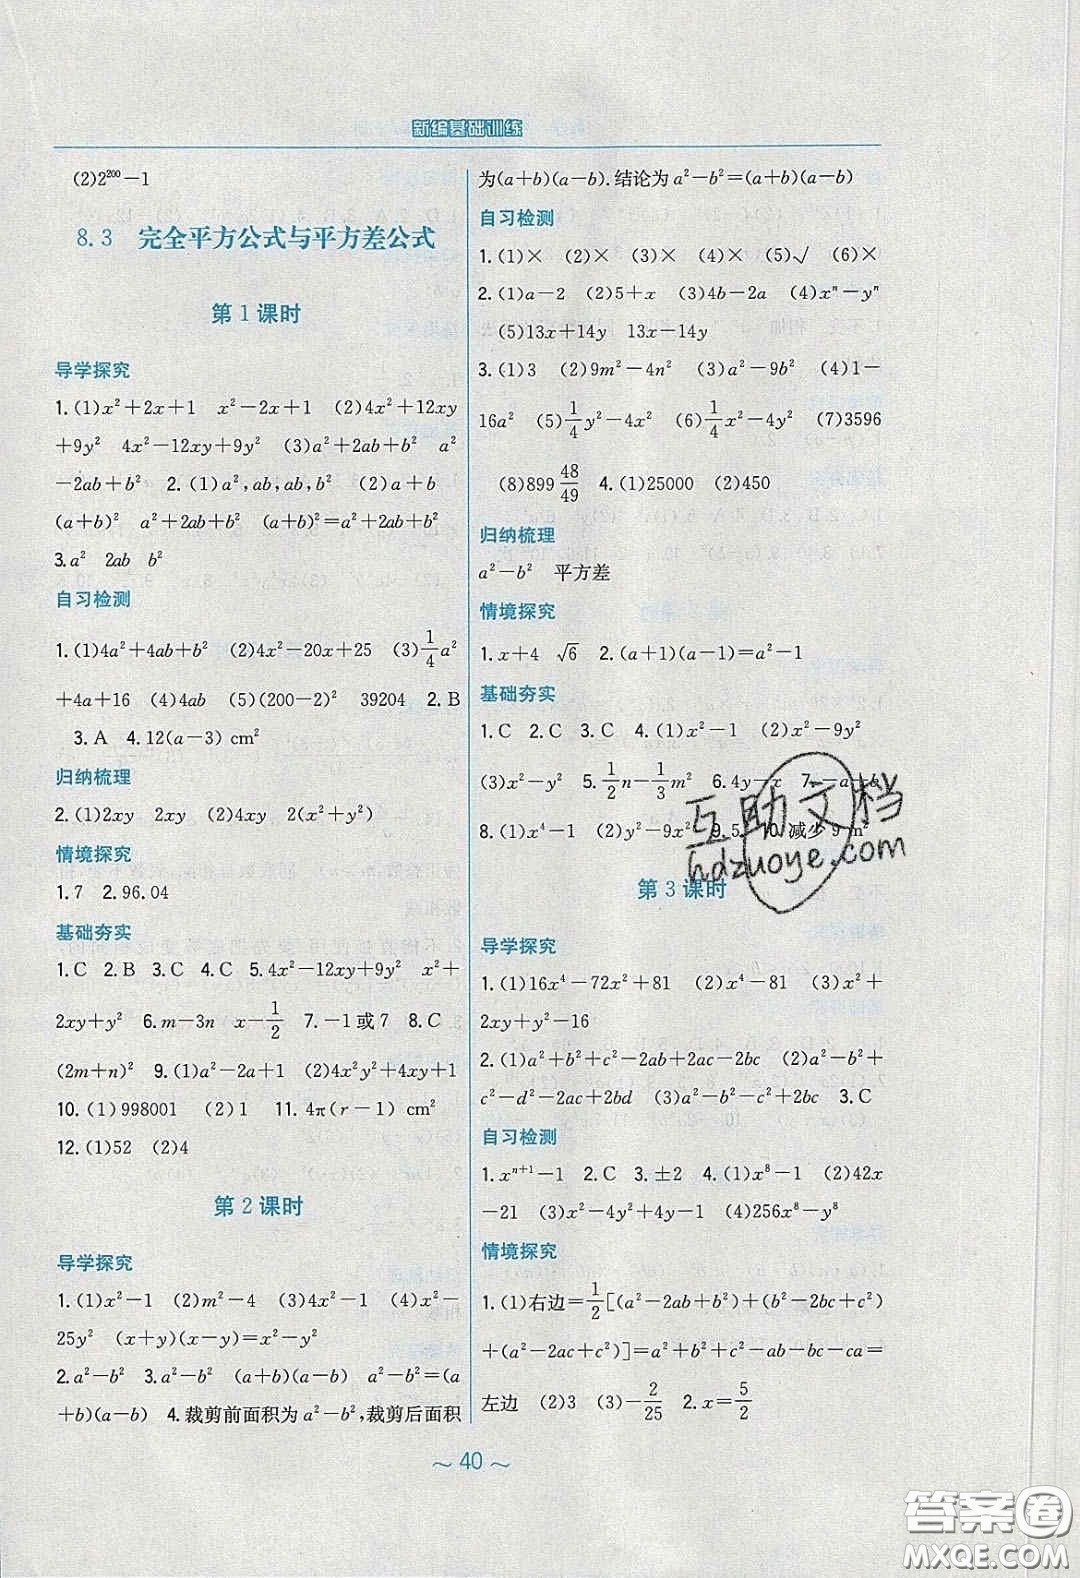 新编基础训练
(2)2²⁰⁰－1
8.3 完全平方公式与平方差公式
第1课时
导学探究
1.(1)x²＋2x＋1 x²－2x＋1 (2)4x²＋12xy
＋9y² 4x²－12xy＋9y² (3)a²＋2ab＋b² a²
－2ab＋b² 2.(1)a²,ab,ab,b² (2)a＋b
(a＋b)² a²＋2ab＋b² (a＋b)²＝a²＋2ab＋b²
3.a² 2ab b²
自习检测
1.(1)4a²＋4ab＋b² (2)4x²－20x＋25 (3)1/4a²
＋4a＋16 (4)4ab (5)(200－2)² 39204 2.B
3.A 4.12(a－3) cm²
归纳梳理
2.(1)2xy 2xy (2)4xy 2(x²＋y²)
情境探究
1.7 2.96.04
基础夯实
1.C 2.B 3.C 4.C 5.4x²－12xy＋9y² x²＋
2xy＋y² 6.m－3n x－1/2 7.－1或7 8.C
(2m＋n)² 9.(1)a²－2a＋1 (2)4x²y²＋4xy＋1
10.(1)998001 (2)1 11.4π(r－1) cm²
12.(1)52 (2)4
第2课时
导学探究
1.(1)x²－1 (2)m²－4 (3)4x²－1 (4)x²－
25y² (x＋y)(x－y)＝x²－y²
2.a²－b² 3.a²－b² (a＋b)(a－b) a²－b²＝(a
＋b)(a－b) 4.裁剪前面积为a²－b²,裁剪后面积
为(a＋b)(a－b).结论为a²－b²＝(a＋b)(a－b)
自习检测
1.(1)× (2)× (3)× (4)× (5)√ (6)×
2.(1)a－2 (2)5＋x (3)4b－2a (4)xⁿ－yⁿ
(5)13x＋14y 13x－14y
3.(1)3 (2)9m²－4n² (3)a²－9b² (4)1－
16a² (5)1/4y²－4x² (6)1/4x²－4y² (7)3596
(8)899 48/49 4.(1)25000 (2)450
归纳梳理
a²－b² 平方差
情境探究
1.x＋4 √6 2.(a＋1)(a－1)＝a²－1
基础夯实
1.C 2.C 3.C 4.(1)x²－1 (2)x²－9y²
(3)x²－y² 5.1/2n－1/3m² 6.4y－x 7.－a－b
8.(1)x⁴－1 (2)y²－9x² 9.5 10.减少9 m²
互助文档
hdzuoye.com
第3课时
导学探究
1.(1)16x⁴－72x²＋81 (2)x⁴－81 (3)x²＋
2xy＋y²－16
2.(1)a²＋b²＋c²－2ab＋2ac－2bc (2)a²－b²＋
c²－d²－2ac＋2bd (3)a²－b²－c²＋2bc 3.C
自习检测
1.xⁿ⁺¹－1 2.C 3.±2 4.(1)x⁸－1 (2)42x
－21 (3)x²－4y²＋4y－1 (4)256x⁸－y⁸
情境探究
1.(1)右边＝1/2[(a²－2ab＋b²)＋(b²－2bc＋c²)
＋(a²－2ac＋c²)]＝a²＋b²＋c²－ab－bc－ca＝
左边 (2)3 (3)－2/25 2.x＝5/2
～ 40 ～
答案圈
MXQE.COM